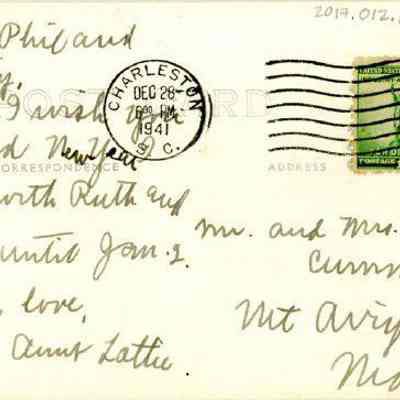 2017.012.
Phil and
CHARLESTON
DEC 28
6 00 PM
1941
S. C.
UNITED STATES
POSTAGE
POST CARD
I wish you
New Year
CORRESPONDENCE
ADDRESS
with Ruth and
until Jan. 2.
love,
Aunt Lattie
Mr. and Mrs.
Mt Airy